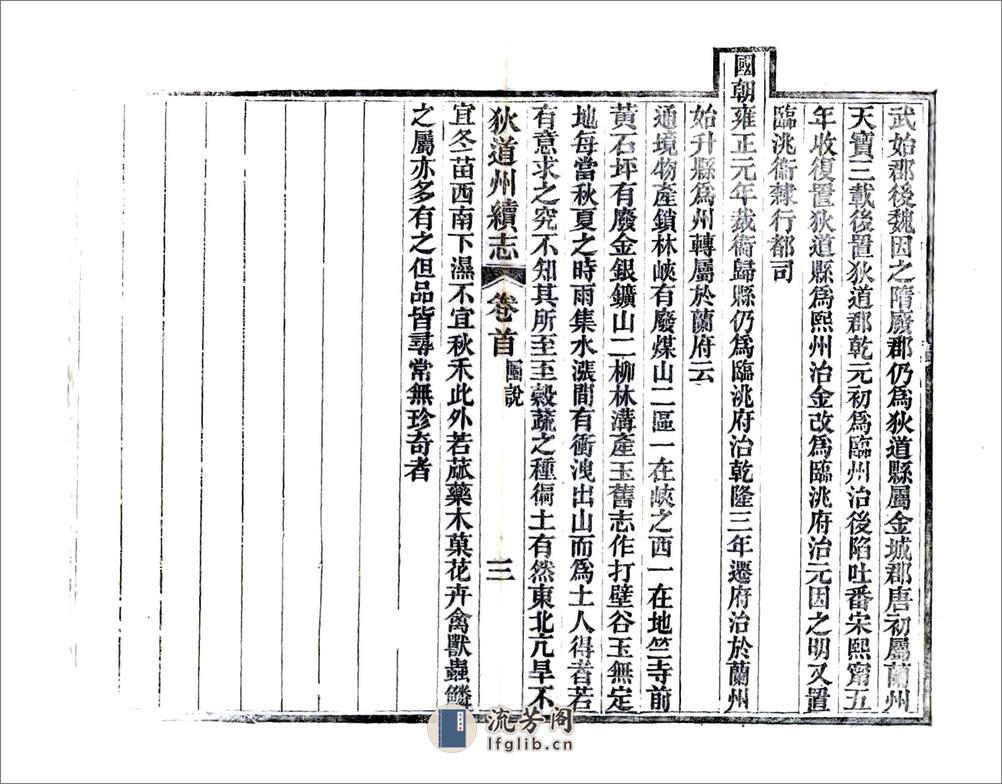 武始郡後魏因之隋廢郡仍為狄道縣屬金城郡唐初屬蘭州
天寶三載後置狄道郡乾元初為臨州治後陷吐番宋熙甯五
年收復置狄道縣為熙州治金改為臨洮府治元因之明又置
臨洮衞隸行都司
國朝雍正元年裁衞歸縣仍為臨洮府治乾隆三年遷府治於蘭州
始升縣為州轉屬於蘭府云
通境物產鎖林峽有廢煤山二區一在峽之西一在地竺寺前
黃石坪有廢金銀鑛山二柳林溝產玉舊志作打壁谷玉無定
地每當秋夏之時雨集水漲間有衝洩出山而為土人得者若
有意求之究不知其所至至穀蔬之種徧土有然東北亢旱不
狄道州續志 卷首 圖說 三
宜冬苗西南下濕不宜秋禾此外若蓏藥木菓花卉禽獸蟲鱗
之屬亦多有之但品皆尋常無珍奇者
流芳阁
lfglib.cn